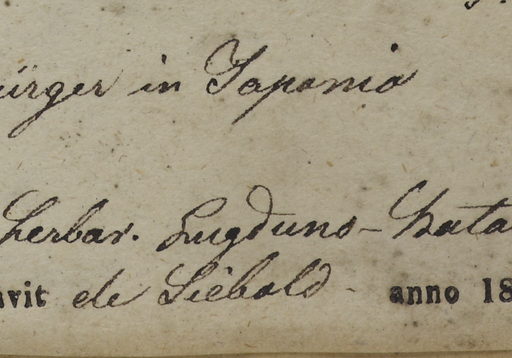 ürger in Japonia
herbar. Lugduno-Bata
avit de Siebold anno 18